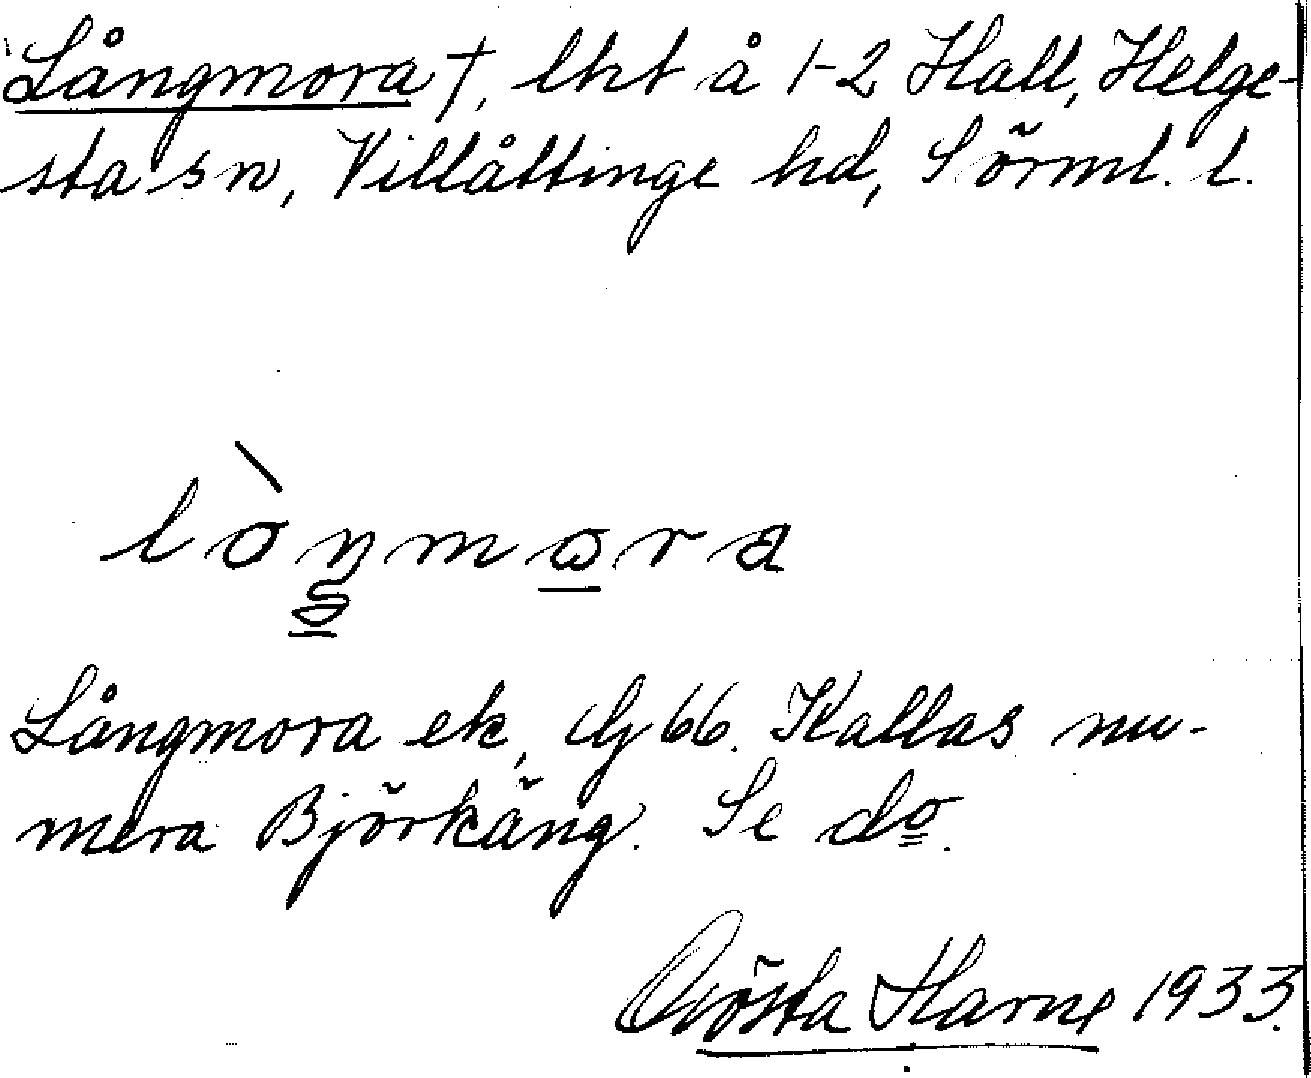 Långmora †, lht å 1-2 Hall, Helge-
sta sn, Villåttinge hd, Sörml. l.
lòŋmora
Långmora ek, Gj 66. Kallas nu-
mera Björkäng. Se do.
Gösta Harne 1933.